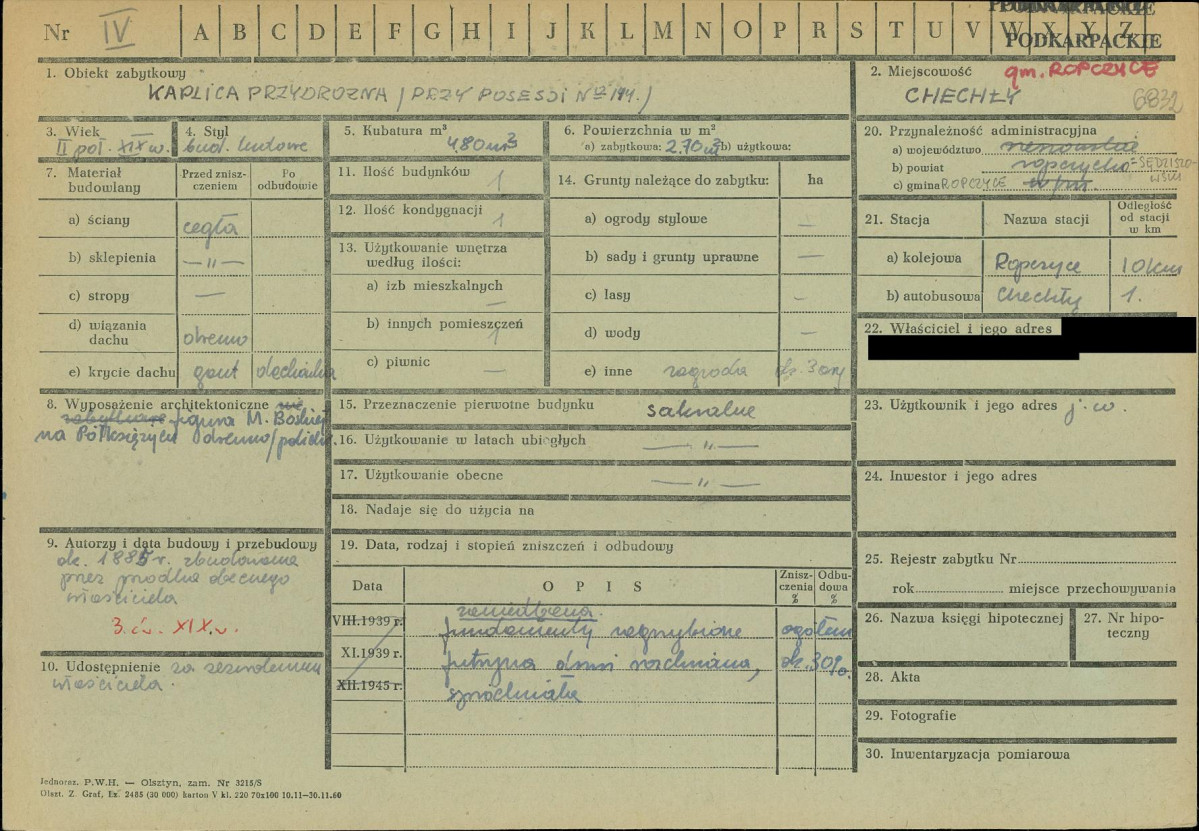 Nr IV A B C D E F G H I J K L M N O P R S T U V W X Y Z
PODKARPACKIE
PODKARPACKIE
1. Obiekt zabytkowy
KAPLICA PRZYDROŻNA / PRZY POSESJI Nr 194./
2. Miejscowość gm. ROPCZYCE
CHECHŁY 6832
3. Wiek
II poł. XIX w.
4. Styl
bud. ludowe
5. Kubatura m³
4,80 m³
6. Powierzchnia w m²
a) zabytkowa: 2.70 m² b) użytkowa:
7. Materiał budowlany
Przed zniszczeniem
Po odbudowie
a) ściany cegła
b) sklepienia — " —
c) stropy —
d) wiązania dachu drewno
e) krycie dachu gont dachówka
8. Wyposażenie architektoniczne
figura M. Boskiej
na Półksiężycu drewno/
9. Autorzy i data budowy i przebudowy
ok. 1885 r. zbudowana
przez pradka obecnego
właściciela
3. ćw. XIX w.
10. Udostępnienie za zezwoleniem
właściciela.
11. Ilość budynków 1
12. Ilość kondygnacji 1
13. Użytkowanie wnętrza według ilości:
a) izb mieszkalnych —
b) innych pomieszczeń 1
c) piwnic —
14. Grunty należące do zabytku: ha
a) ogrody stylowe —
b) sady i grunty uprawne —
c) lasy —
d) wody —
e) inne zagroda ok. 3 ary
15. Przeznaczenie pierwotne budynku sakralne
16. Użytkowanie w latach ubiegłych — " —
17. Użytkowanie obecne — " —
18. Nadaje się do użycia na
19. Data, rodzaj i stopień zniszczeń i odbudowy
Data
OPIS
Zniszczenia %
Odbudowa %
zaniedbana.
VIII.1939 r. fundamenty zagrzybione ogółem
XI.1939 r. futryna drzwi ok. 30%.
XII.1945 r. spróchniałe
20. Przynależność administracyjna
a) województwo rzeszowskie
b) powiat ropczycko-SĘDZISZOWSKI
c) gmina ROPCZYCE w/m.
21. Stacja
Nazwa stacji
Odległość od stacji w km
a) kolejowa Ropczyce 10 km
b) autobusowa Chechły 1.
22. Właściciel i jego adres
23. Użytkownik i jego adres j. w.
24. Inwestor i jego adres
25. Rejestr zabytku Nr
rok miejsce przechowywania
26. Nazwa księgi hipotecznej
27. Nr hipoteczny
28. Akta
29. Fotografie
30. Inwentaryzacja pomiarowa
Jednoraz. P.W.H. — Olsztyn, zam. Nr 3215/S
Olszt. Z. Graf, Ez. 2485 (30 000) karton V kl. 220 70x100 10.11—30.11.60